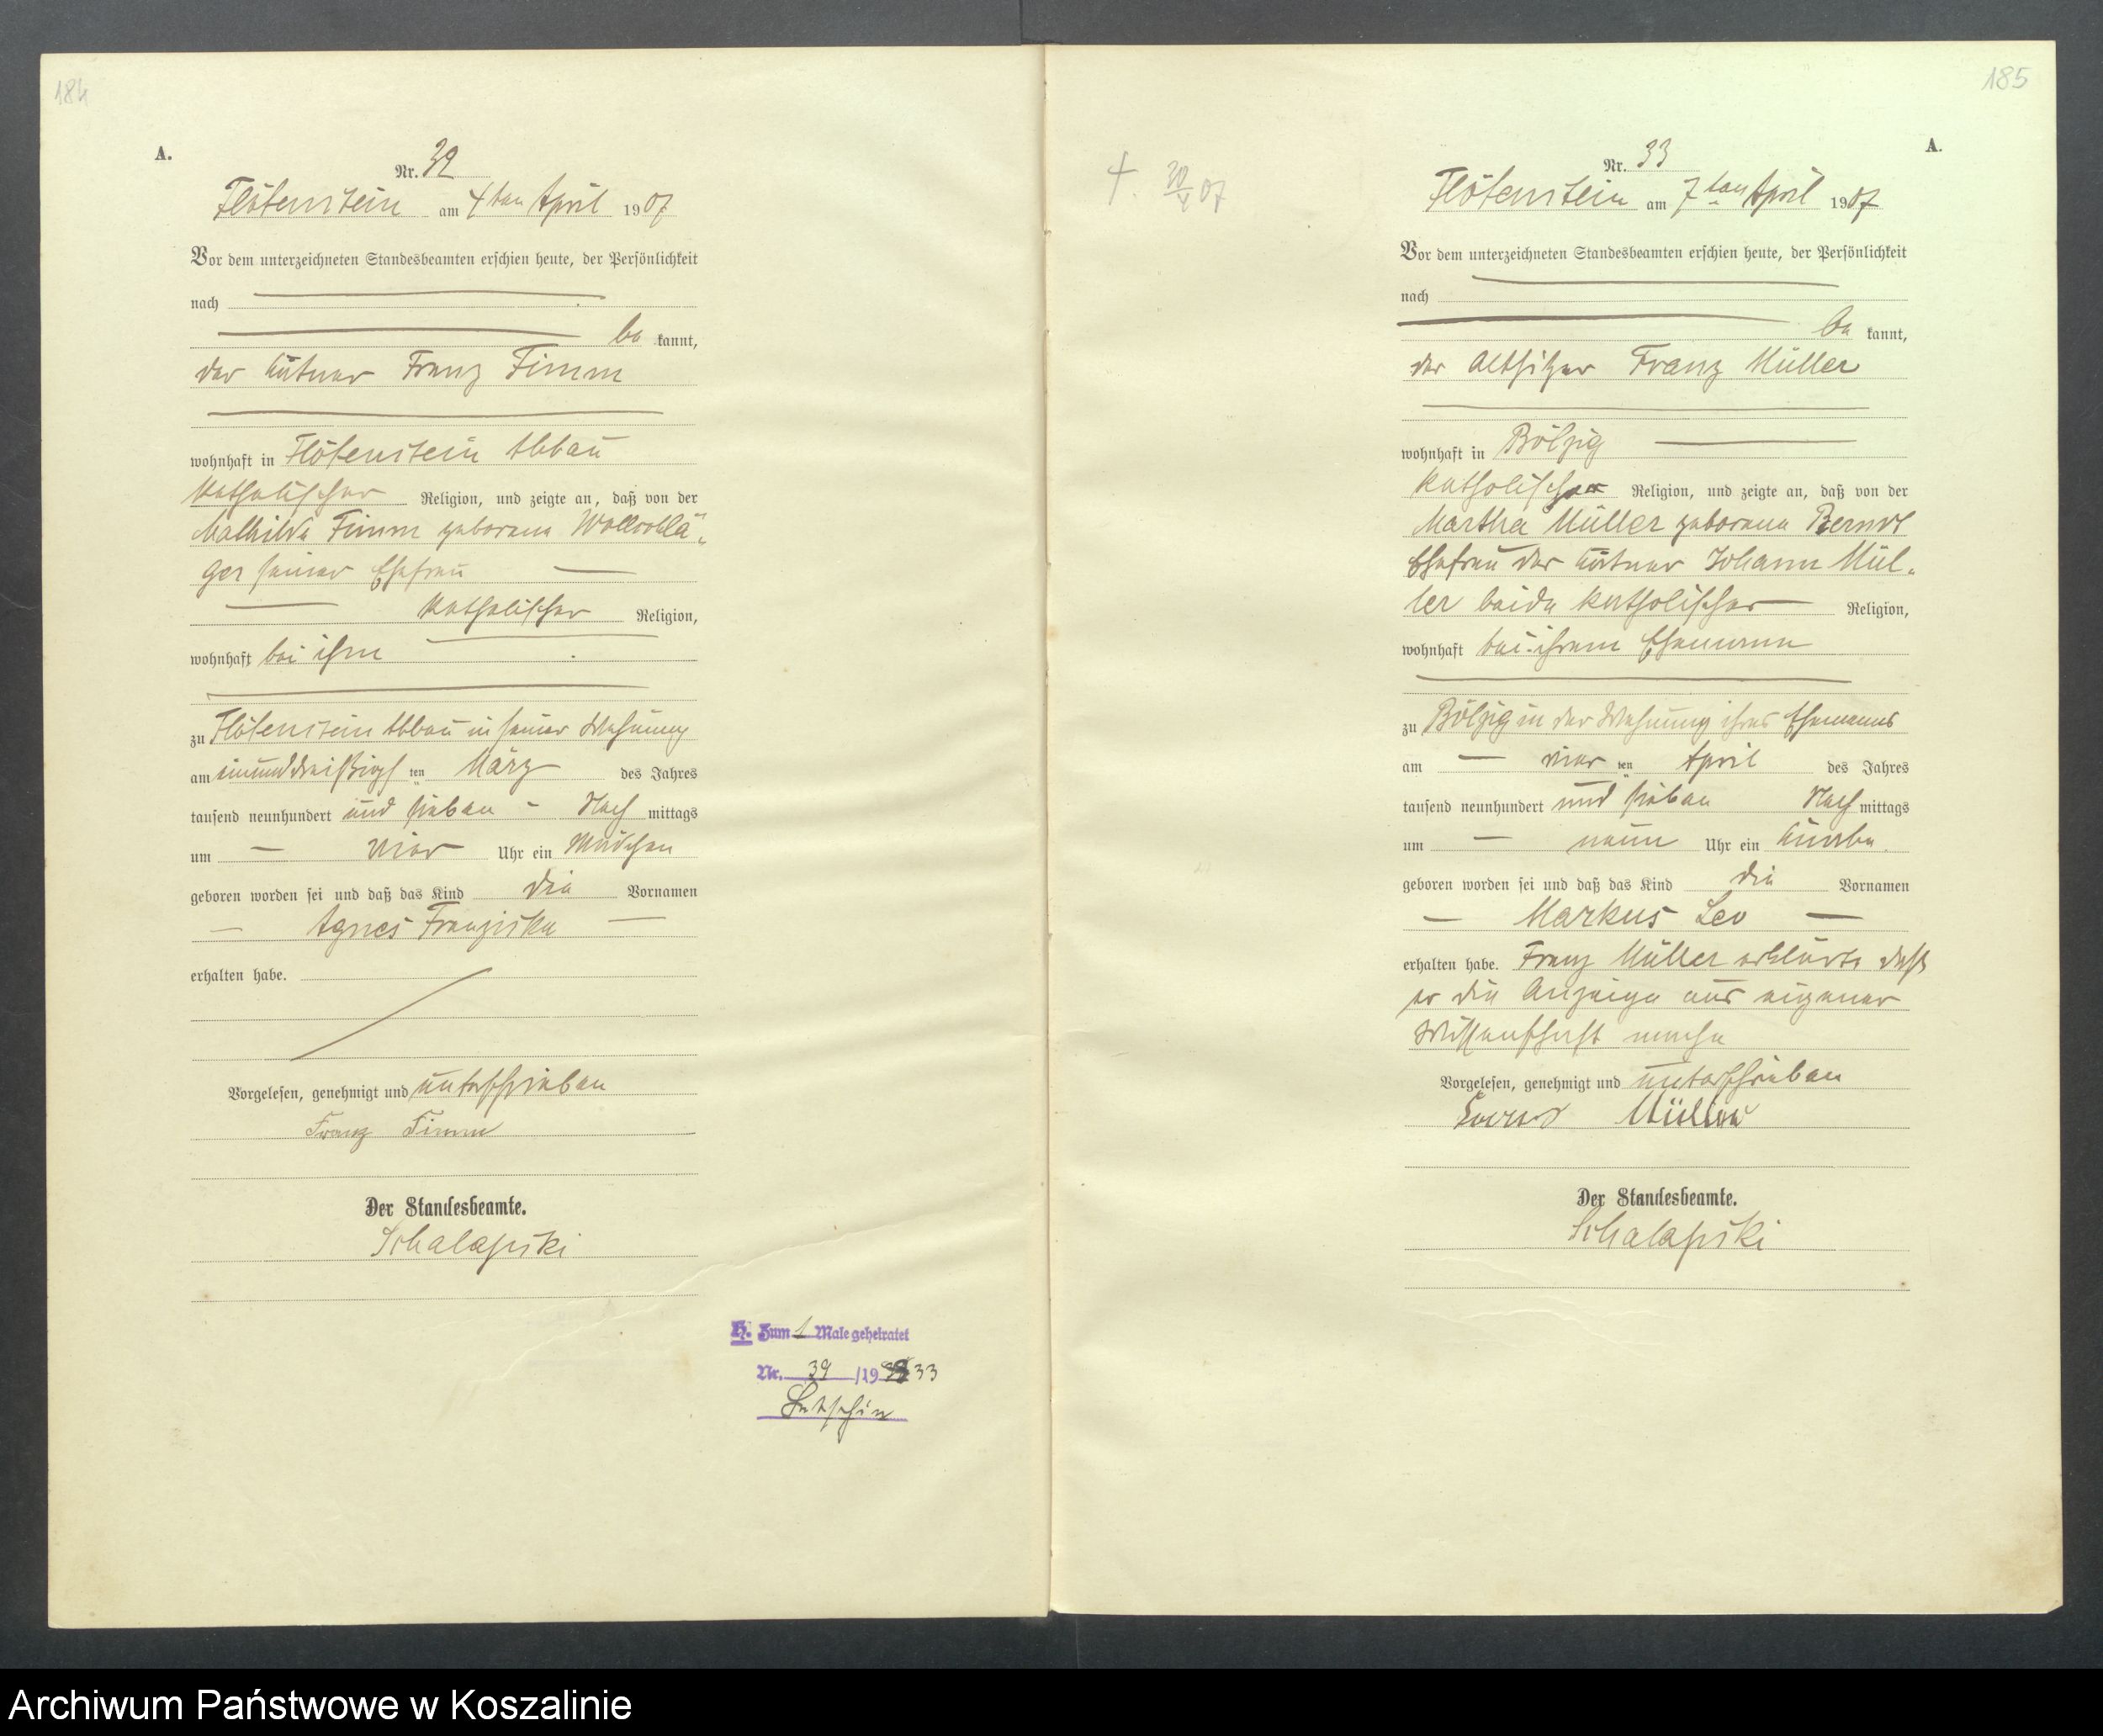 184
A.
Nr. 32
Flötenstein am 4ten April 1907
Vor dem unterzeichneten Standesbeamten erschien heute, der Persönlichkeit
nach
be kannt,
der Kätner Franz Timm
wohnhaft in Flötenstein Abbau
katholischer Religion, und zeigte an, daß von der
Mathilde Timm geborene
ger seiner Ehefrau
katholischer Religion,
wohnhaft bei ihm
zu Flötenstein Abbau in seiner Wohnung
am einunddreißigst ten März des Jahres
tausend neunhundert und sieben Nach mittags
um vier Uhr ein Mädchen
geboren worden sei und daß das Kind die Vornamen
Agnes Franziska
erhalten habe.
Vorgelesen, genehmigt und unterschrieben
Franz Timm
Der Standesbeamte.
Schalapski
H. Zum 1 Male geheiratet
Nr. 39 /19 33
185
A.
†. 30/V 07
Nr. 33
Flötenstein am 7ten April 1907
Vor dem unterzeichneten Standesbeamten erschien heute, der Persönlichkeit
nach
be kannt,
der Altsitzer Franz Müller
wohnhaft in Bölzig
katholischer Religion, und zeigte an, daß von der
Martha Müller geborene Berndt
Ehefrau des Kätner Johann Mül-
ler beide katholischer Religion,
wohnhaft bei ihrem Ehemann
zu Bölzig in der Wohnung ihres Ehemanns
am vier ten April des Jahres
tausend neunhundert und sieben Nach mittags
um neun Uhr ein Knabe
geboren worden sei und daß das Kind die Vornamen
Markus Leo
erhalten habe. Franz Müller erklärte daß
er die Anzeige aus eigener
Wissenschaft mache
Vorgelesen, genehmigt und unterschrieben
Müller
Der Standesbeamte.
Schalapski
Archiwum Państwowe w Koszalinie